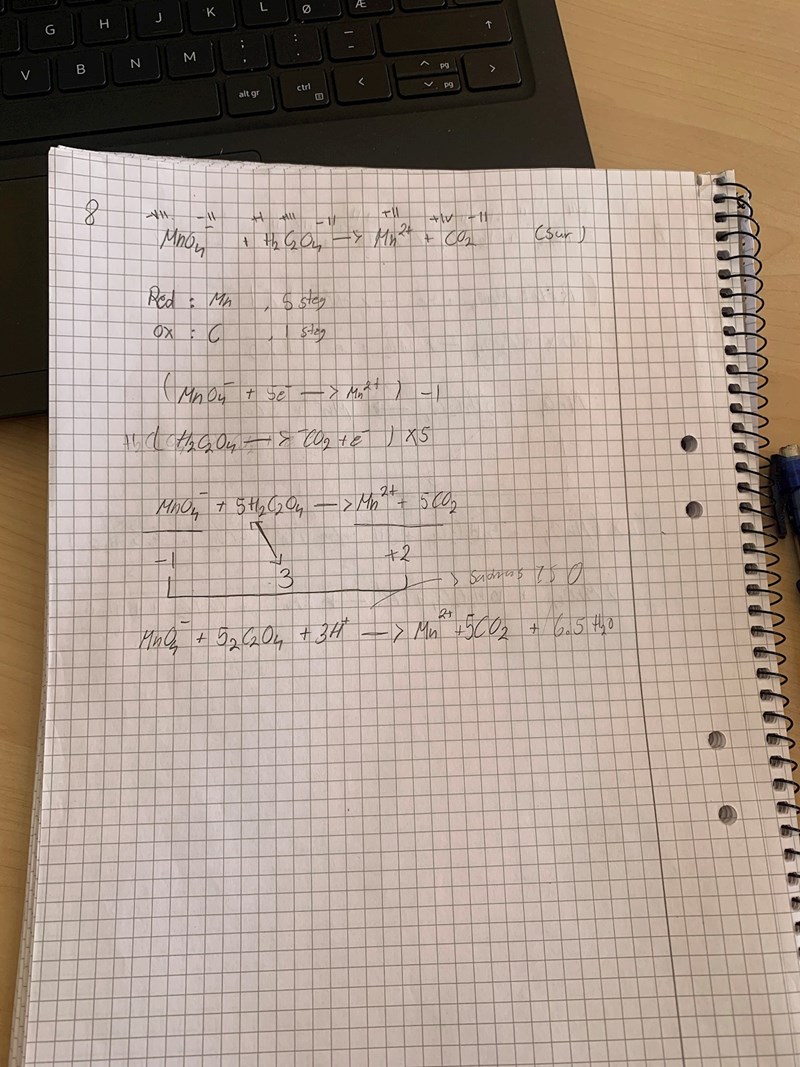 G H J K L Ø Æ
V B N M ; , : . _ - ↑
alt gr ctrl < ^ pg v pg >
8
+VII -II +I +III -II +II +IV -II
MnO₄⁻ + H₂C₂O₄ —> Mn²⁺ + CO₂ (Sur)
Red : Mn , 5 steg
Ox : C , 1 steg
( MnO₄⁻ + 5e⁻ —> Mn²⁺ ) -1
( H₂C₂O₄ —> CO₂ + e⁻ ) ×5
MnO₄⁻ + 5H₂C₂O₄ —> Mn²⁺ + 5CO₂
-1 3 +2
MnO₄⁻ + 5₂C₂O₄ + 3H⁺ —> Mn²⁺ + 5CO₂ + 6.5 H₂O